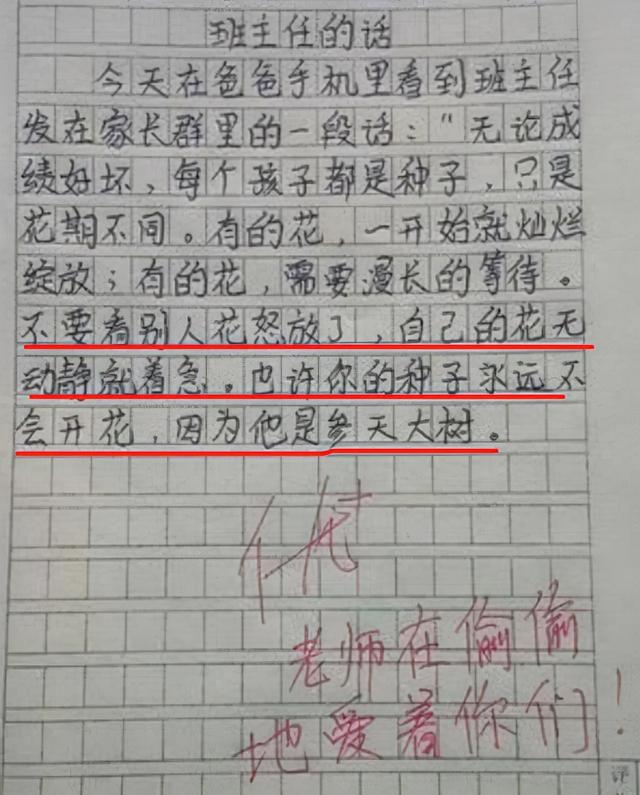 班主任的话
今天在爸爸手机里看到班主任
发在家长群里的一段话："无论成
绩好坏，每个孩子都是种子，只是
花期不同。有的花，一开始就灿烂
绽放；有的花，需要漫长的等待。
不要看别人花怒放了，自己的花无
动静就着急。也许你的种子永远不
会开花，因为他是参天大树。
优
老师在偷偷
地爱着你们！
评